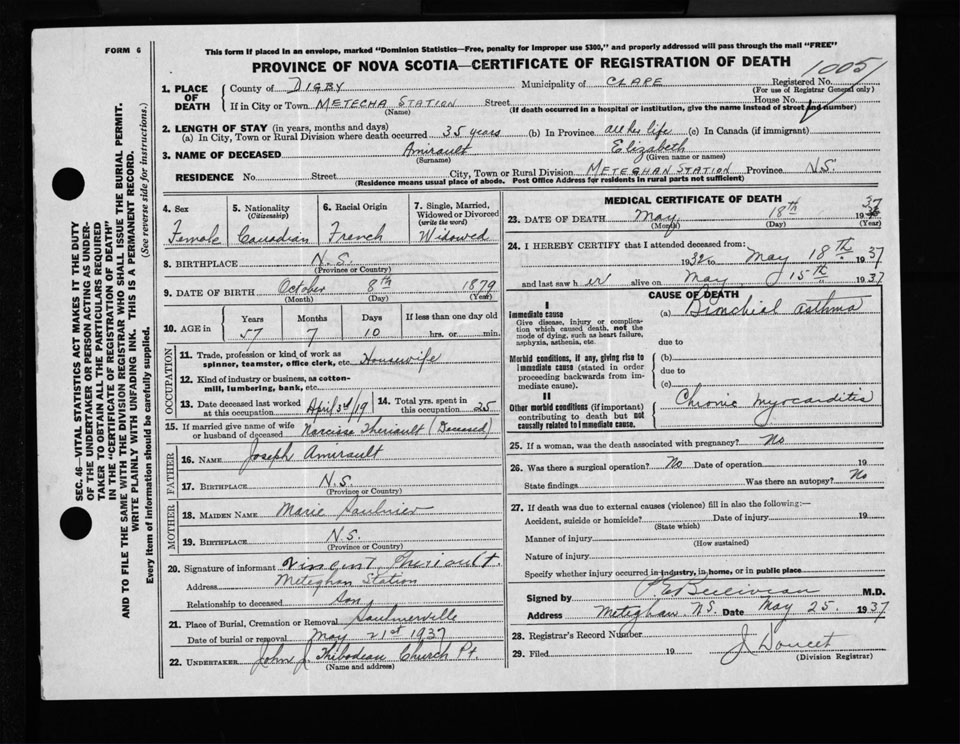 FORM 6
This form if placed in an envelope, marked "Dominion Statistics—Free, penalty for improper use $300," and properly addressed will pass through the mail "FREE"
PROVINCE OF NOVA SCOTIA—CERTIFICATE OF REGISTRATION OF DEATH
1005
1. PLACE OF DEATH
County of DIGBY Municipality of CLARE Registered No.
(For use of Registrar General only)
If in City or Town METECHA STATION Street House No.
(Name) (If death occurred in a hospital or institution, give the name instead of street and number)
2. LENGTH OF STAY (in years, months and days)
(a) In City, Town or Rural Division where death occurred 35 years (b) In Province all her life (c) In Canada (if immigrant)
3. NAME OF DECEASED Amirault Elizabeth
(Surname) (Given name or names)
RESIDENCE No. Street City, Town or Rural Division METEGHAN STATION Province N.S.
(Residence means usual place of abode. Post Office Address for residents in rural parts not sufficient)
4. Sex
Female
5. Nationality
(Citizenship)
Canadian
6. Racial Origin
French
7. Single, Married, Widowed or Divorced
(write the word)
Widowed
8. BIRTHPLACE N.S.
(Province or Country)
9. DATE OF BIRTH October 8th 1879
(Month) (Day) (Year)
10. AGE in Years Months Days If less than one day old
57 7 10 hrs. or min.
OCCUPATION
11. Trade, profession or kind of work as spinner, teamster, office clerk, etc. Housewife
12. Kind of industry or business, as cotton-mill, lumbering, bank, etc.
13. Date deceased last worked at this occupation April 3rd/19 14. Total yrs. spent in this occupation 35
15. If married give name of wife or husband of deceased Narcisse Theriault (Deceased)
FATHER
16. NAME Joseph Amirault
17. BIRTHPLACE N.S.
(Province or Country)
MOTHER
18. MAIDEN NAME Marie Saulnier
19. BIRTHPLACE N.S.
(Province or Country)
20. Signature of informant Vincent Theriault.
Address Meteghan Station
Relationship to deceased Son
21. Place of Burial, Cremation or Removal Saulnierville
Date of burial or removal May 21st 1937
22. UNDERTAKER John J. Thibodeau Church Pt.
(Name and address)
MEDICAL CERTIFICATE OF DEATH
23. DATE OF DEATH May 18th 19 37
(Month) (Day) (Year)
24. I HEREBY CERTIFY that I attended deceased from:
1932 to May 18th 1937
and last saw h er alive on May 15th 1937
CAUSE OF DEATH
I
Immediate cause
Give disease, injury or complication which caused death, not the mode of dying, such as heart failure, asphyxia, asthenia, etc.
(a) Bronchial asthma
due to
Morbid conditions, if any, giving rise to immediate cause (stated in order proceeding backwards from immediate cause).
(b)
due to
(c)
II
Other morbid conditions (if important) contributing to death but not causally related to immediate cause.
Chronic myocarditis
25. If a woman, was the death associated with pregnancy? No
26. Was there a surgical operation? No Date of operation 19
State findings Was there an autopsy? No
27. If death was due to external causes (violence) fill in also the following:—
Accident, suicide or homicide? Date of injury 19
(State which)
Manner of injury
(How sustained)
Nature of injury
Specify whether injury occurred in industry, in home, or in public place
Signed by M.D.
Address Meteghan N.S. Date May 25. 1937
28. Registrar's Record Number
29. Filed 19 J Doucet
(Division Registrar)
SEC. 46—VITAL STATISTICS ACT MAKES IT THE DUTY
OF THE UNDERTAKER OR PERSON ACTING AS UNDER-
TAKER TO OBTAIN ALL THE PARTICULARS REQUIRED
IN THE "CERTIFICATE OF REGISTRATION OF DEATH"
AND TO FILE THE SAME WITH THE DIVISION REGISTRAR WHO SHALL ISSUE THE BURIAL PERMIT.
WRITE PLAINLY WITH UNFADING INK. THIS IS A PERMANENT RECORD.
Every item of information should be carefully supplied. (See reverse side for instructions.)